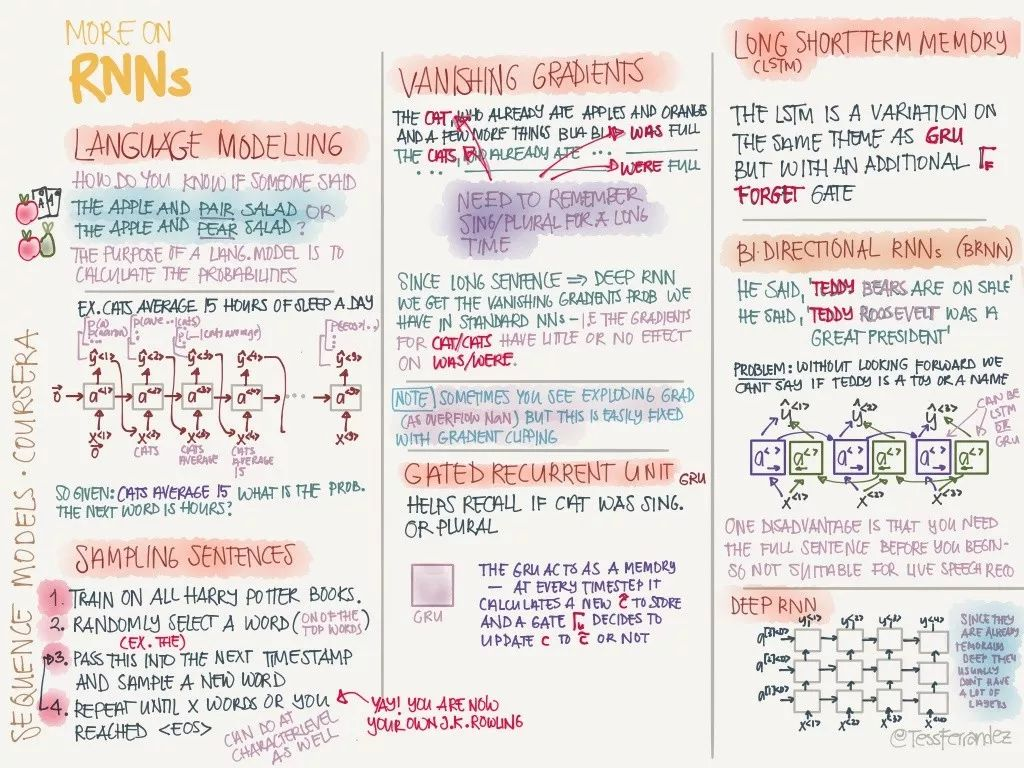 MORE ON
RNNs
LANGUAGE MODELLING
HOW DO YOU KNOW IF SOMEONE SAID
THE APPLE AND PAIR SALAD OR
THE APPLE AND PEAR SALAD?
THE PURPOSE OF A LANG. MODEL IS TO
CALCULATE THE PROBABILITIES
EX. CATS AVERAGE 15 HOURS OF SLEEP A DAY
ŷ<1> ŷ<2> ŷ<3> ŷ<4> ŷ<9>
a<1> a<2> a<3> a<4> ... a<9>
x<1> x<2> x<3> x<4> x<9>
CATS
CATS
AVERAGE
CATS
AVERAGE
15
SO GIVEN: CATS AVERAGE 15 WHAT IS THE PROB.
THE NEXT WORD IS HOURS?
SAMPLING SENTENCES
1. TRAIN ON ALL HARRY POTTER BOOKS.
2. RANDOMLY SELECT A WORD (ON OF THE
TOP WORDS)
(EX. THE)
3. PASS THIS INTO THE NEXT TIMESTAMP
AND SAMPLE A NEW WORD
4. REPEAT UNTIL X WORDS OR YOU
REACHED <EOS>
CAN DO AT
CHARACTERLEVEL
AS WELL
YAY! YOU ARE NOW
YOUR OWN J.K. ROWLING
SEQUENCE MODELS · COURSERA
VANISHING GRADIENTS
THE CAT, WHO ALREADY ATE APPLES AND ORANGE
AND A FEW MORE THINGS BLA BLA WAS FULL
THE CATS, WHO ALREADY ATE ...
... WERE FULL
NEED TO REMEMBER
SING/PLURAL FOR A LONG
TIME
SINCE LONG SENTENCE ⇒ DEEP RNN
WE GET THE VANISHING GRADIENTS PROB WE
HAVE IN STANDARD NNs – I.E THE GRADIENTS
FOR CAT/CATS HAVE LITLE OR NO EFFECT
ON WAS/WERE.
NOTE SOMETIMES YOU SEE EXPLODING GRAD
(AS OVERFLOW NaN) BUT THIS IS EASILY FIXED
WITH GRADIENT CLIPPING
GATED RECURRENT UNIT GRU
HELPS RECALL IF CAT WAS SING.
OR PLURAL
GRU
THE GRU ACTS AS A MEMORY
– AT EVERY TIMESTEP IT
CALCULATES A NEW c̃ TO STORE
AND A GATE Γ DECIDES TO
UPDATE C TO c̃ OR NOT
LONG SHORT TERM MEMORY
(LSTM)
THE LSTM IS A VARIATION ON
THE SAME THEME AS GRU
BUT WITH AN ADDITIONAL ΓF
FORGET GATE
BI-DIRECTIONAL RNNs (BRNN)
HE SAID, 'TEDDY BEARS ARE ON SALE'
HE SAID, 'TEDDY ROOSEVELT WAS A
GREAT PRESIDENT'
PROBLEM: WITHOUT LOOKING FORWARD WE
CANT SAY IF TEDDY IS A TOY OR A NAME
CAN BE
LSTM
OR
GRU
ŷ<1> ŷ<2> ŷ<3>
a<> a<> a<> a<> a<> a<>
x<1> x<2> x<3>
ONE DISADVANTAGE IS THAT YOU NEED
THE FULL SENTENCE BEFORE YOU BEGIN-
SO NOT SUITABLE FOR LIVE SPEECH RECO
DEEP RNN
y<1> y<2> y<3> y<4>
a[3]<0>
a[2]<0>
a[1]<0>
x<1> x<2> x<3> x<4>
SINCE THEY
ARE ALREADY
TEMORALLY
DEEP THEY
USUALLY
DONT HAVE
A LOT OF
LAYERS
@TessFerrandez